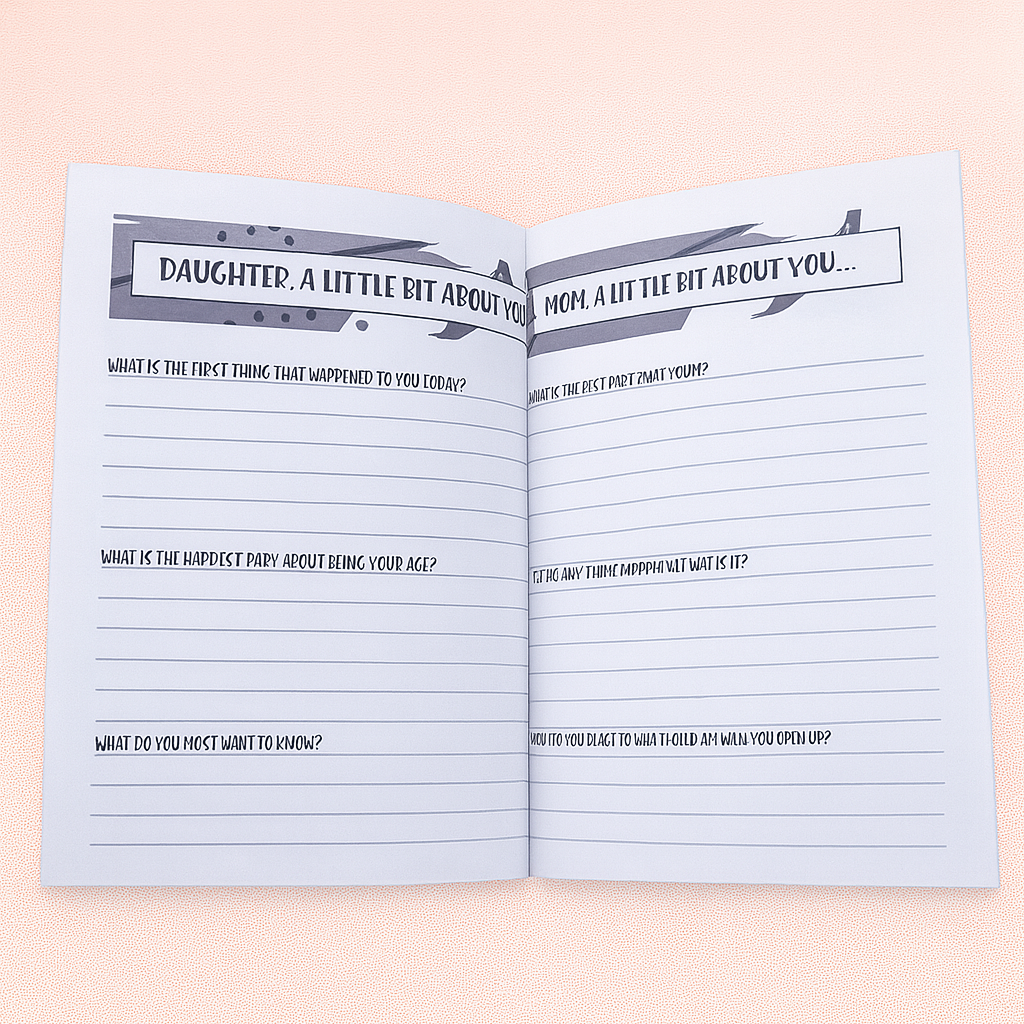 DAUGHTER, A LITTLE BIT ABOUT YOU
WHAT IS THE FIRST THING THAT WAPPENED TO YOU EODAY?
WHAT IS THE HARDEST PARY ABOUT BEING YOUR AGE?
WHAT DO YOU MOST WANT TO KNOW?
MOM, A LITTLE BIT ABOUT YOU...
WHAT IS THE BEST PART YOUM?
ANY THIME WAT IS IT?
YOU TO WHA AM YOU OPEN UP?